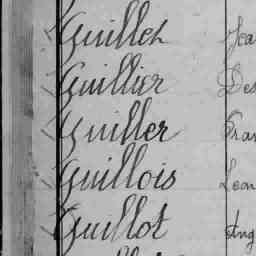 Guillet Jea
Guillier Des
Guiller Fran
Guillois Leon
Guillot Ang